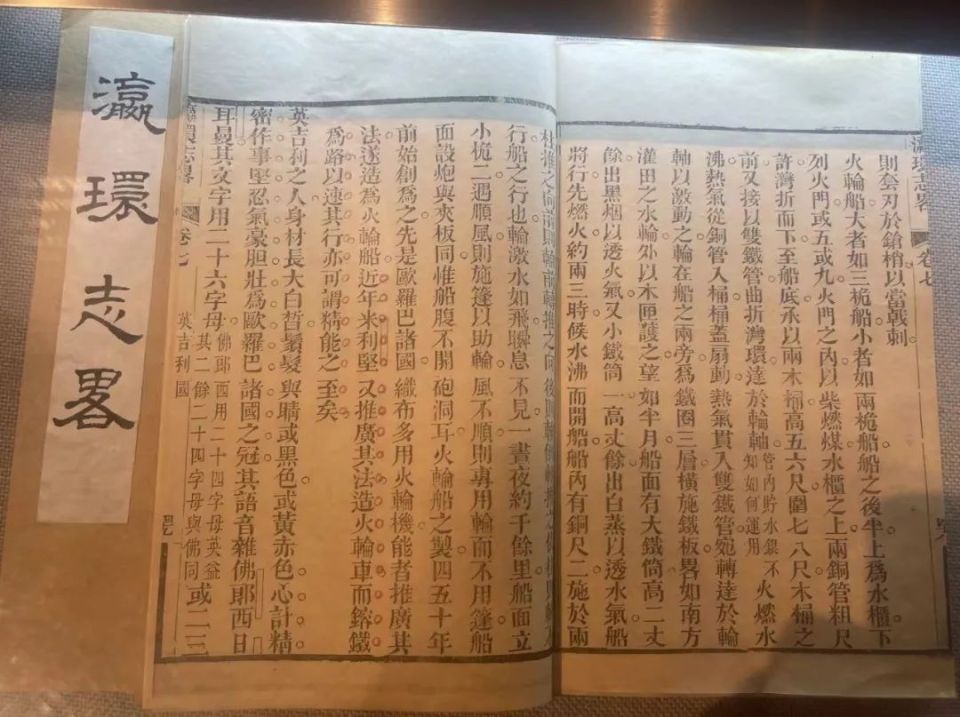 瀛環志畧
瀛環志畧 卷七
則套刃於鎗梢以當戟刺
火輪船大者如三桅船小者如兩桅船船之後半上爲水櫃下
列火門或五或九火門之內以柴燃煤水櫃之上兩銅管粗尺
許灣折而下至船底承以兩木桶高五六尺圍七八尺木桶之
前又接以雙鐵管曲折灣環達於輪軸管內貯水銀不知如何運用火燃水
沸熱氣從銅管入桶桶蓋扇動熱氣貫入雙鐵管宛轉達於輪
軸以激動之輪在船之兩旁爲鐵圈三層橫施鐵板畧如南方
灌田之水輪外以木匣護之望如半月船面有大鐵筒高二丈
餘出黑烟以透火氣又小鐵筒一高丈餘出白蒸以透水氣船
將行先燃火約兩三時候水沸而開船船內有銅尺二施於兩
柱推之向前則輪前轉推之向後則輪
行船之行也輪激水如飛瞬息不見一晝夜約千餘里船面立
小桅二遇順風則施篷以助輪風不順則專用輪而不用篷船
面設炮與夾板同惟船腹不開砲洞耳火輪船之製四五十年
前始創爲之先是歐羅巴諸國織布多用火輪機能者推廣其
法遂造爲火輪船近年米利堅又推廣其法造火輪車而鎔鐵
爲路以速其行亦可謂精能之至矣
英吉利之人身材長大白皙鬚髮與睛或黑色或黃赤色心計精
密作事堅忍氣豪胆壯爲歐羅巴諸國之冠其語音雜佛郎西日
耳曼其文字用二十六字母佛郎西用二十四字母英益其二餘二十四字母與佛同或二三
瀛環志畧 卷七 英吉利國